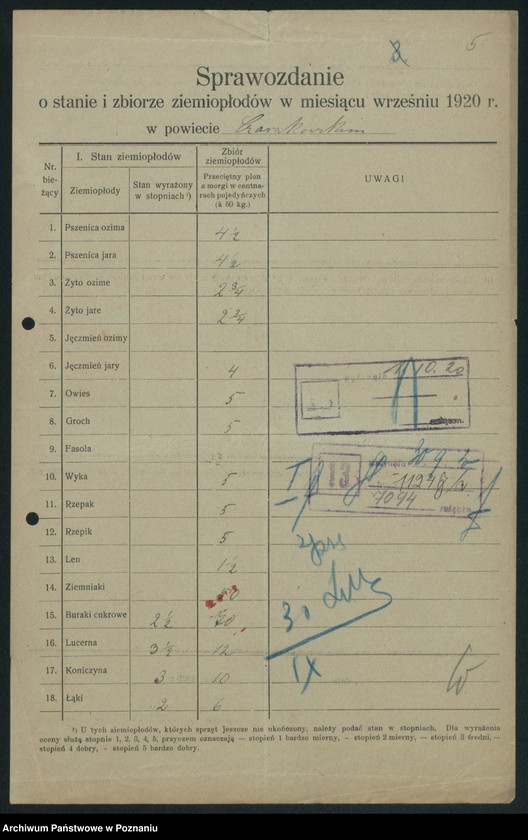 5
Sprawozdanie
o stanie i zbiorze ziemiopłodów w miesiącu wrześniu 1920 r.
w powiecie Czarnkowskim
Nr. bieżący
I. Stan ziemiopłodów
Ziemiopłody
Stan wyrażony w stopniach ¹)
Zbiór ziemiopłodów
Przeciętny plon z morgi w centnarach pojedyńczych (à 50 kg.)
UWAGI
1. Pszenica ozima 4 ½
2. Pszenica jara 4 ½
3. Żyto ozime 2 ¾
4. Żyto jare 2 ¾
5. Jęczmień ozimy
6. Jęczmień jary 4
7. Owies 5
8. Groch 5
9. Fasola
10. Wyka 5
11. Rzepak 5
12. Rzepik 5
13. Len 1 ½
14. Ziemniaki
15. Buraki cukrowe 2 ½ 70
16. Lucerna 3 ½ 12
17. Koniczyna 3 10
18. Łąki 2 6
1/10. 20
załączn.
13
30 9
7094
załączn.
30
IX
¹) U tych ziemiopłodów, których sprzęt jeszcze nie ukończony, należy podać stan w stopniach. Dla wyrażenia
oceny służą stopnie 1, 2, 3, 4, 5, przyczem oznaczają — stopień 1 bardzo mierny, – stopień 2 mierny, — stopień 3 średni, —
stopień 4 dobry, – stopień 5 bardzo dobry.
Archiwum Państwowe w Poznaniu